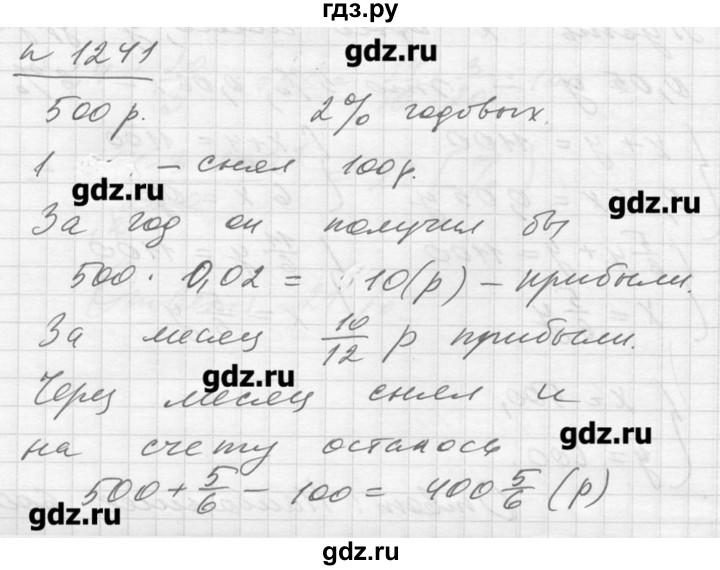 гдз.ру
gdz.ru
n 1241
500 р. 2% годовых.
1 – снял 100р.
gdz.ru
gdz.ru
За год он получил бы
500 · 0,02 = 10(р) – прибыли.
За месяц 10/12 р прибыли.
gdz.ru
Через месяц снял и
gdz.ru
на счету осталось
500 + 5/6 – 100 = 400 5/6 (р)
gdz.ru
gdz.ru